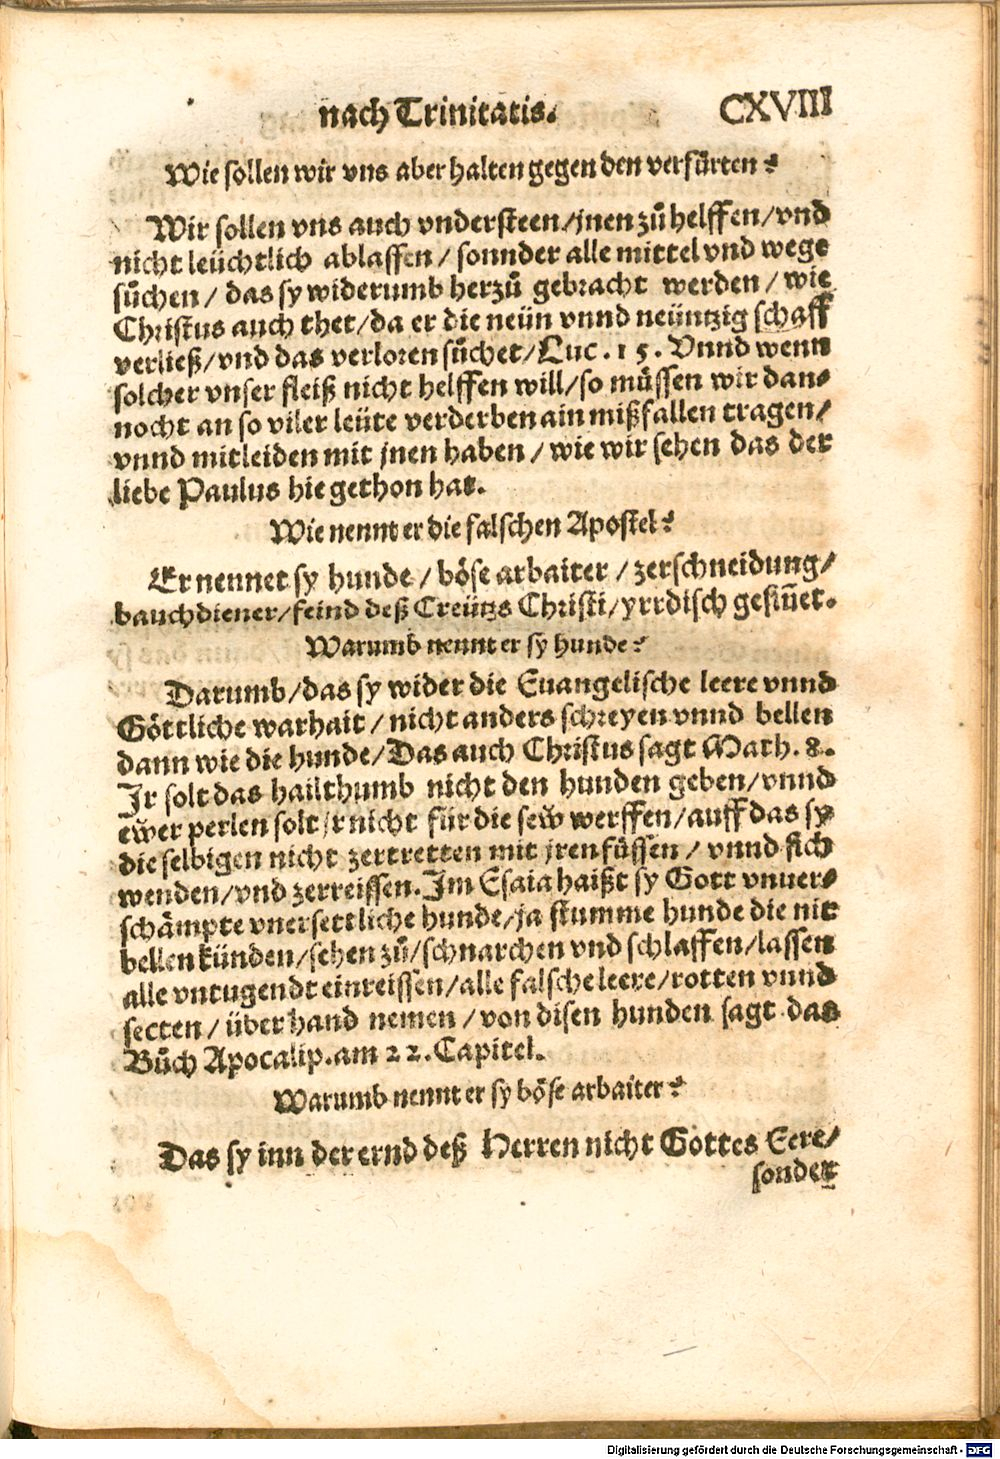 nach Trinitatis.
CXVIII
Wie sollen wir vns aber halten gegen den verfürten?
Wir sollen vns auch vndersteen/jnen zů helffen/vnd
nicht leüchtlich ablassen / sonnder alle mittel vnd wege
sůchen / das sy widerumb herzů gebracht werden / wie
Christus auch thet/da er die neün vnnd neüntzig schaff
verließ/vnd das verloren sůchet/Luc. 15. Vnnd wenn
solcher vnser fleiß nicht helffen will/so müssen wir dan⸗
nocht an so viler leüte verderben ain mißfallen tragen/
vnnd mitleiden mit jnen haben / wie wir sehen das der
liebe Paulus hie gethon hat.
Wie nennt er die falschen Apostel?
Er nennet sy hunde / böse arbaiter / zerschneidung/
bauchdiener/feind deß Creütz Christi/yrrdisch gesiñet.
Warumb nennt er sy hunde?
Darumb/das sy wider die Euangelische leere vnnd
Göttliche warhait / nicht anders schreyen vnnd bellen
dann wie die hunde/Das auch Christus sagt Math. 8.
Jr solt das hailthumb nicht den hunden geben/vnnd
ewer perlen solt jr nicht für die sew werffen/auff das sy
die selbigen nicht zertretten mit jren füssen / vnnd sich
wenden/vnd zerreissen. Im Esaia haißt sy Gott vnuer⸗
schämpte vnersettliche hunde/ja stumme hunde die nit
bellen künden/sehen zů/schnarchen vnd schlaffen/lassen
alle vntugendt einreissen/alle falsche leere/rotten vnnd
secten / über hand nemen / von disen hunden sagt das
Bůch Apocalip. am 22. Capitel.
Warumb nennt er sy böse arbaiter?
Das sy inn der ernd deß Herren nicht Gottes Eere/
sonder
Digitalisierung gefördert durch die Deutsche Forschungsgemeinschaft - DFG